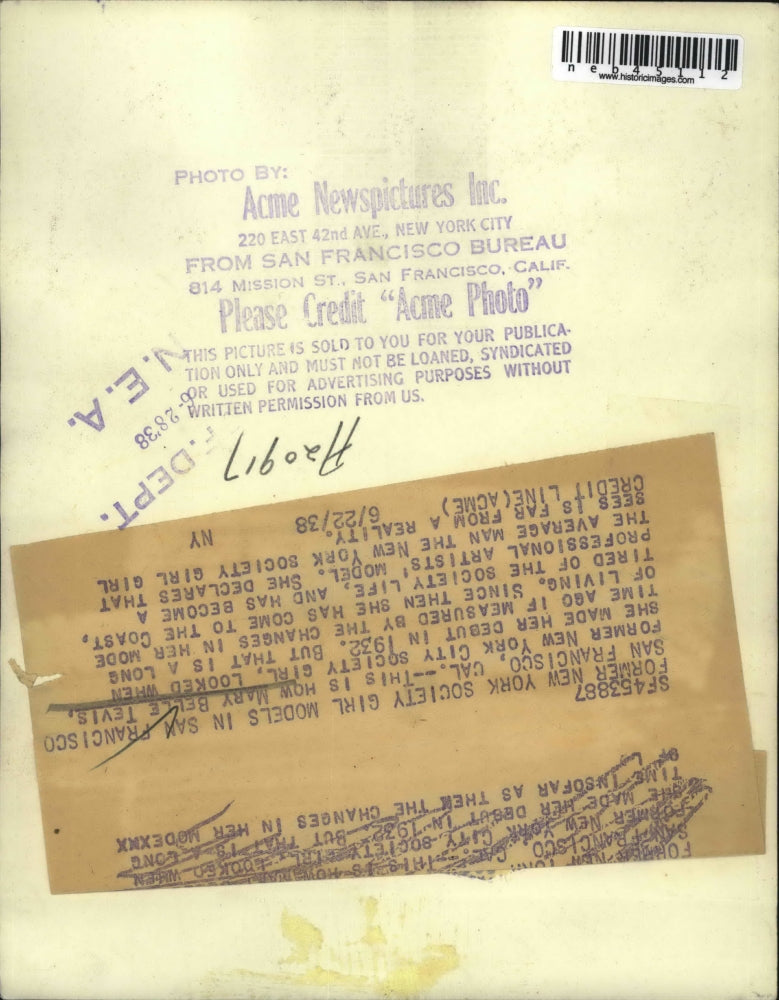 neb45112
www.historicimages.com
PHOTO BY:
Acme Newspictures Inc.
220 EAST 42nd AVE., NEW YORK CITY
FROM SAN FRANCISCO BUREAU
814 MISSION ST., SAN FRANCISCO, CALIF.
Please Credit "Acme Photo"
THIS PICTURE IS SOLD TO YOU FOR YOUR PUBLICA-
TION ONLY AND MUST NOT BE LOANED, SYNDICATED
OR USED FOR ADVERTISING PURPOSES WITHOUT
WRITTEN PERMISSION FROM US.
N. E. A.
6-28'38
F. DEPT.
A20917
SF453887
FORMER NEW YORK SOCIETY GIRL MODELS IN SAN FRANCISCO
SAN FRANCISCO, CAL.--THIS IS HOW MARY BELLE TEVIS,
FORMER NEW YORK CITY SOCIETY GIRL, LOOKED WHEN
SHE MADE HER DEBUT IN 1932. BUT THAT IS A LONG
TIME AGO IF MEASURED BY THE CHANGES IN HER MODE
OF LIVING. SINCE THEN SHE HAS COME TO THE COAST,
TIRED OF THE SOCIETY LIFE, AND HAS BECOME A
PROFESSIONAL ARTISTS' MODEL. SHE DECLARES THAT
THE AVERAGE MAN THE NEW YORK SOCIETY GIRL
SEES IS FAR FROM A REALITY.
CREDIT LINE(ACME) 6/22/38 NY
FORMER NEW YORK
SAN FRANCISCO, CAL.--THIS IS HOW LOOKED WHEN
FORMER NEW YORK CITY SOCIETY GIRL
SHE MADE HER DEBUT IN 1932. BUT THAT IS A LONG
TIME INSOFAR AS THEN THE CHANGES IN HER MODEXXX
OF L